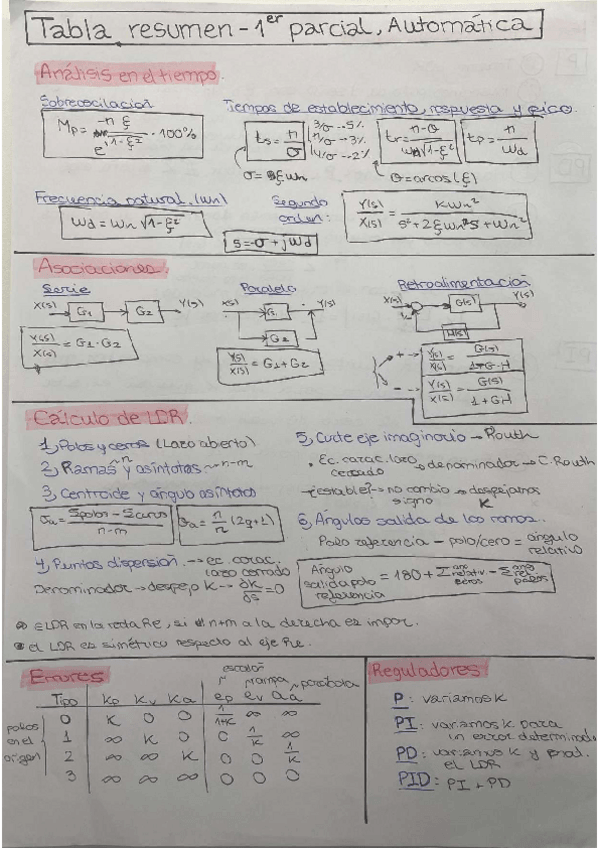 Tabla resumen - 1er parcial, Automática
Análisis en el tiempo.
Sobreoscilación
Mp = e^(-π ξ / √1-ξ²) · 100%
Tiempos de establecimiento, respuesta y pico.
ts = π/σ
3/σ -- 5%
π/σ -- 3%
4/σ -- 2%
tr = π-θ / ωd √1-ξ²
tp = π/ωd
σ = ξωn
θ = arcos(ξ)
Frecuencia natural. (ωn)
ωd = ωn √1-ξ²
Segundo orden:
Y(s)/X(s) = Kωn² / s² + 2ξωn²s + ωn²
s = -σ + jωd
Asociaciones.
Serie
X(s) G1 G2 Y(s)
Y(s)/X(s) = G1 · G2
Paralelo
X(s) G1 Y(s)
G2
Y(s)/X(s) = G1 + G2
Retroalimentación
X(s) G(s) Y(s)
H(s)
+ → Y(s)/X(s) = G(s) / 1-G·H
- → Y(s)/X(s) = G(s) / 1+GH
Cálculo de LDR.
1, Polos y ceros (Lazo abierto)
2, Ramas ~n y asíntotas ~ n-m
3, Centroide y ángulo asíntotas
σa = Σpolos - Σceros / n-m
θa = π/n (2q+1)
4, Puntos dispersión. → ec. carac. lazo cerrado
Denominador → despejo K → ∂K/∂s = 0
5, Corte eje imaginario → Routh
Ec. carac. lazo cerrado → denominador → C. Routh
¿estable? → no cambio signo → despejamos K
6, Ángulos salida de las ramas.
Polo referencia - polo/cero = ángulo relativo
Ángulo salida polo referencia = 180 + Σ ang relativ. ceros - Σ ang rel. polos
∈ LDR en la recta Re, si n+m a la derecha es impar.
el LDR es simétrico respecto al eje Re.
Errores
escalón rampa parábola
Tipo Kp Kv Ka ep ev aa
polos en el origen
0 K 0 0 1/1+K ∞ ∞
1 ∞ K 0 0 1/K ∞
2 ∞ ∞ K 0 0 1/K
3 ∞ ∞ ∞ 0 0 0
Reguladores
P: variamos K
PI: variamos K para
un error determinado
PD: variamos K y prod.
el LDR
PID: PI + PD